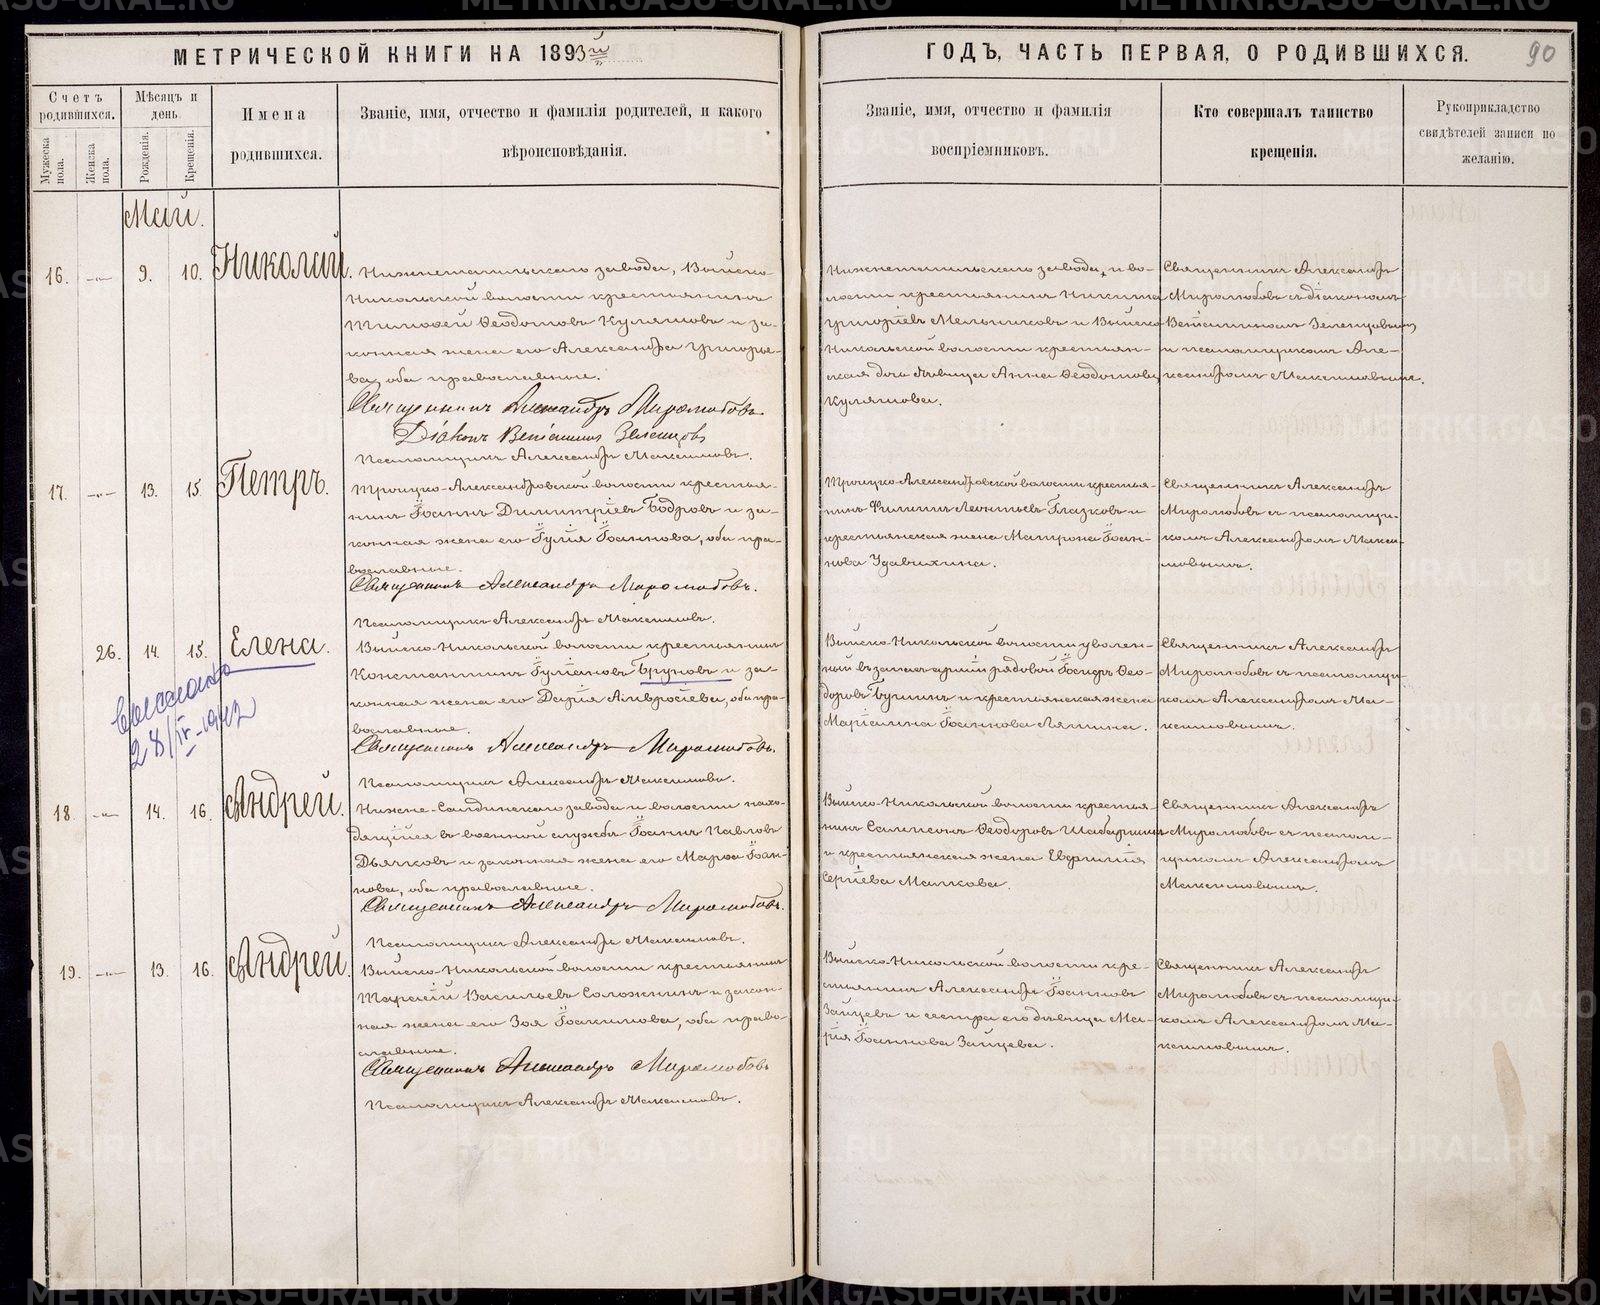 МЕТРИЧЕСКОЙ КНИГИ НА 1893й
ГОДЪ, ЧАСТЬ ПЕРВАЯ, О РОДИВШИХСЯ.
90
Счетъ родившихся.
Мѣсяцъ и день
Имена родившихся.
Званіе, имя, отчество и фамилія родителей, и какого вѣроисповѣданія.
Званіе, имя, отчество и фамилія воспріемниковъ.
Кто совершалъ таинство крещенія.
Рукоприкладство свидѣтелей записи по желанію.
Мужеска пола.
Женска пола.
Рожденія.
Крещенія.
Май.
16.
9.
10.
Николай.
Нижнетагильскаго завода, Выйско-
Никольской волости крестьянинъ
Тимоѳей Ѳеодотовъ Куляшовъ и за-
конная жена его Александра Григорье-
ва, оба православные.
Священникъ Александръ Миролюбовъ.
Діаконъ Веніаминъ Зеленцовъ
Псаломщикъ Александръ Максимовъ.
Нижнетагильскаго завода и во-
лости крестьянинъ Никита
Григоріевъ Мельниковъ и Выйско-
Никольской волости крестьян-
ская дочь дѣвица Анна Ѳеодотова
Куляшова.
Священникъ Александръ
Миролюбовъ съ діакономъ
Веніаминомъ Зеленцовымъ
и псаломщикомъ Але-
ксандромъ Максимовымъ.
17.
13.
15.
Петръ.
Троицко-Александровской волости крестья-
нинъ Іоаннъ Димитріевъ Бодровъ и за-
конная жена его Іулія Іоаннова, оба пра-
вославные.
Священникъ Александръ Миролюбовъ.
Псаломщикъ Александръ Максимовъ.
Троицко-Александровской волости крестья-
нинъ Филиппъ Леонтьевъ Глазковъ и
крестьянская жена Матрона Іоан-
нова
Священникъ Александръ
Миролюбовъ съ псаломщи-
комъ Александромъ Макси-
мовымъ.
26.
14.
15.
Елена.
28/IV-1942
Выйско-Никольской волости крестьянинъ
Константинъ Бруновъ и за-
конная жена его Дарія Амвросіева, оба пра-
вославные.
Священникъ Александръ Миролюбовъ.
Псаломщикъ Александръ Максимовъ.
Выйско-Никольской волости уволен-
ный въ запасъ арміи рядовой Ѳео-
доровъ и крестьянская жена
Маріамна Іоаннова Ляпина.
Священникъ Александръ
Миролюбовъ съ псаломщи-
комъ Александромъ Ма-
ксимовымъ.
18.
14.
16.
Андрей.
Нижне-Салдинскаго завода и волости нахо-
дящійся въ военной службѣ Іоаннъ Павловъ
Дьячковъ и законная жена его Марѳа Іоан-
нова, оба православные.
Священникъ Александръ Миролюбовъ.
Псаломщикъ Александръ Максимовъ.
Выйско-Никольской волости крестья-
нинъ Сампсонъ Ѳеодоровъ
и крестьянская жена Евфимія
Сергіева Малкова.
Священникъ Александръ
Миролюбовъ съ псалом-
щикомъ Александромъ
Максимовымъ.
19.
13.
16.
Андрей.
Выйско-Никольской волости крестьянинъ
Тарасій Васильевъ Соложнинъ и закон-
ная жена его Зоя Іоакимова, оба право-
славные.
Священникъ Александръ Миролюбовъ
Псаломщикъ Александръ Максимовъ.
Выйско-Никольской волости кре-
стьянинъ Александръ Іоанновъ
Зайцевъ и сестра его дѣвица Ма-
рія Іоаннова Зайцева.
Священникъ Александръ
Миролюбовъ съ псаломщи-
комъ Александромъ Ма-
ксимовымъ.
METRIKI.GASO-URAL.RU